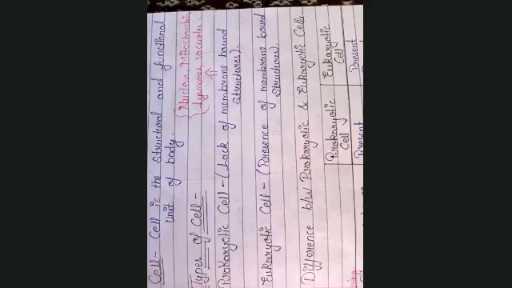 Cell - Cell is the structural and functional
unit of body.
Types of Cell -
Prokaryotic Cell - (Lack of membrane bound
structures).
Eukaryotic Cell - (Presence of membrane bound
structures).
Difference b/w Prokaryotic & Eukaryotic Cells
Prokaryotic Cell
Eukaryotic Cell
Present
Present